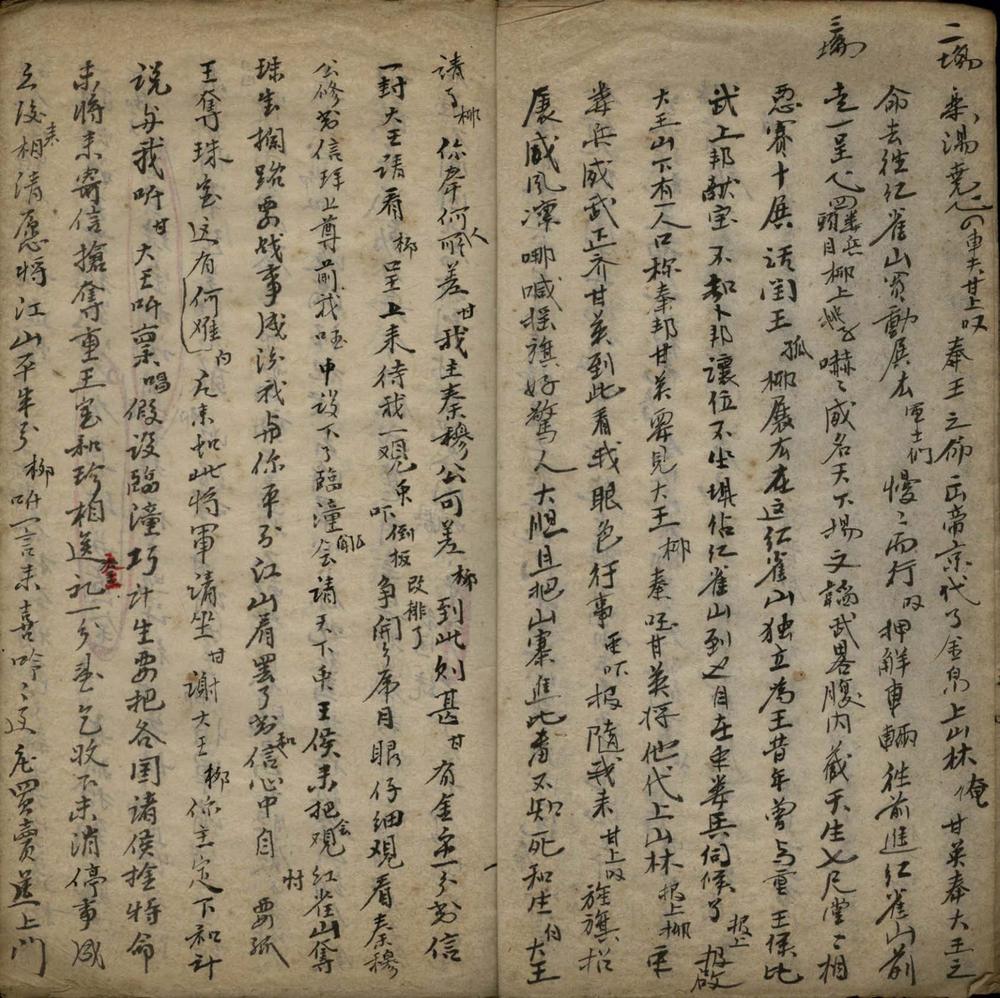 二塲 乘湯堯 甘上又 奉王之命出帝京代了金帛上山林 俺甘英奉大王之
命去往红雀山買動展去 軍士们 慢〻而行 又 押解車輛往前進红雀山前
三塲 走一呈 四娄兵頭目柳上 嚇〻威名天下揚文韜武畧腹内藏天生七尺堂〻相
惡賽十展活闰王 孤柳展去在这红雀山独立為王昔年曾与重王侯比
武上邦献宝不却卜邦讓位不坐填佔红雀山到也自在 娄兵伺候了 报上 报啟
大王山下有一人口称秦邦甘英要見大王 柳 秦邦甘英将他代上山林 报上柳
娄兵威武正齐甘英到此看我眼色行事 吓 报隨我来 甘上又 旌旗招
展威风凛哪喊摇旗好驚人大胆且把山寨進此番不知死和生 大王
请了 柳 你奉何人所差 甘 我主秦穆公可差 柳 到此则甚 甘 有金宝一分书信
一封大王请看 柳 呈上来待我一观 吓 倒板 改排了 争開了席目眼仔细观看秦穆
公修书信拜上尊前我 中设下了臨潼 会请天下 王侯来把会观红雀山奪
珠宝攔路要战事成治我与你平分江山看罢了书信心中自 和 要孤
王奪珠宝这有何难 内 元来如此将軍请坐 甘 谢大王 柳 你主定下和計
说与我听 甘 大王听禀 唱 假设臨潼巧计生要把各国诸侯捨特命
末将来寄信搶奪重王宝和珍相送礼一分 乞收下来消停事成
之後来相请愿将江山平半分 柳 听一言来喜吟〻这庄買賣送上門